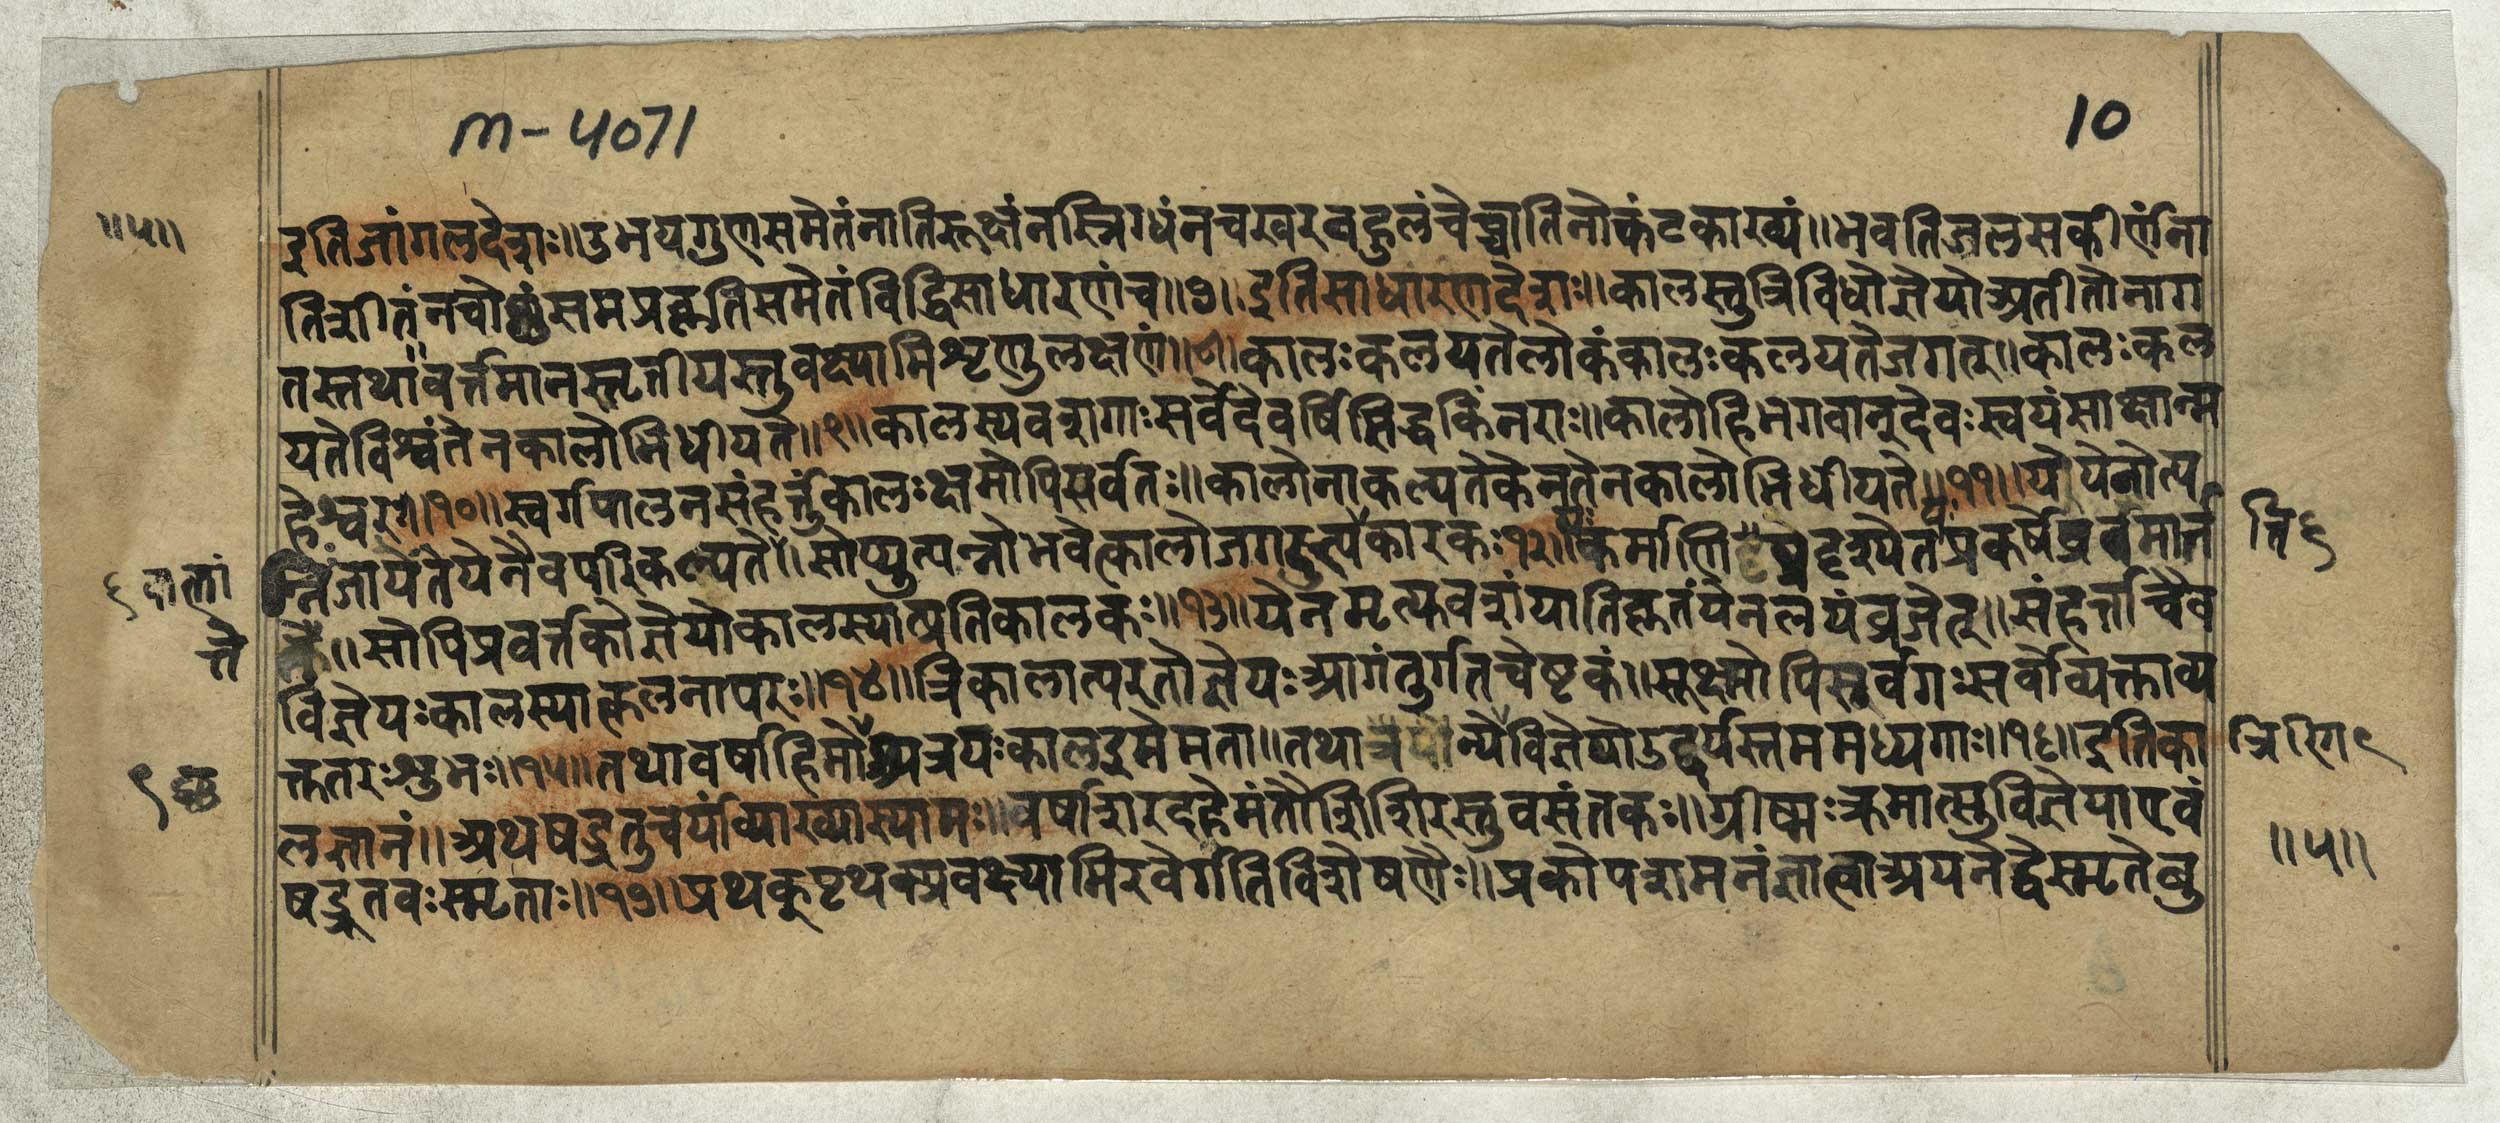 m-4071
10
॥५॥
इति जांगलदेशः॥ उभयगुणसमेतं नातिरूक्षं न स्निग्धं न च खरबहुलं चेच्चातिनो कंटकाख्यं॥ भवति जलसकीर्णं ना
तिशीतं न चोष्णं समप्रकृतिसमेतं विद्धि साधारणं च॥७॥ इति साधारणदेशः॥ कालस्तु त्रिविधो ज्ञेयो अतीतोनाग
तस्तथा॥ वर्त्तमानस्तृतीयस्तु वक्ष्यामि शृणु लक्षणं॥८॥ कालः कलयते लोकं कालः कलयते जगत्॥ कालः कल
यते विश्वं तेन कालोभिधीयते॥९॥ कालस्य वशगाः सर्वे देवर्षिसिद्धकिंनराः॥ कालो हि भगवान् देवः स्वयं साक्षान्म
हेश्वरः॥१०॥ स्वर्गपालनसंहर्त्तुं कालः क्षमोपि सर्वतः॥ कालेनाकल्पते केन तेन कालोभिधीयते॥११॥ ये येनोत्प
त्तिं जायेते येनैव परिकल्प्यते॥ सोप्युत्पन्नो भवेत्कालो जगदुत्प्यैकारकः १२॥ कर्माणि दृश्येत प्रकर्षे प्रवर्तमान
त्ति ६
६ दात्तां
ते॥ सोपि प्रवर्त्तको ज्ञेयो कालस्यात्प्रतिकालकः॥१३॥ येन मृत्युवशं याति कृतं येन लयं व्रजेत्॥ संहर्त्ता चैव
ते
विज्ञेयः कालस्यात्कलनापरः॥१४॥ त्रिकालात्परतो ज्ञेयः आगंतुर्गतचेष्टकं॥ सूक्ष्मोपि सर्वगः सर्वो व्यक्ताव्य
क्ततरः शुभः॥१५॥ तथा वर्षाहिमोष्णाख्य त्रयः काल इमे मता॥ तथा त्रयोन्ये विज्ञेयोऽद्दर्यस्तममध्यगाः॥१६॥ इति का
९ ष्ण
लज्ञानं॥ अथ षडृतुचर्यं व्याख्यास्यामः॥ वर्षा शरदहेमंतौ शिशिरस्तु वसंतकः॥ ग्रीष्मः क्रमात्सु विज्ञेया एवं
षडृतवः स्मृताः॥१७॥ प्रथक् पृथक्प्रवक्ष्यामि रवेर्गतिविशेषणैः॥ प्रकोपशमनं ज्ञात्वा अयने द्वे स्मृते बु
॥५॥